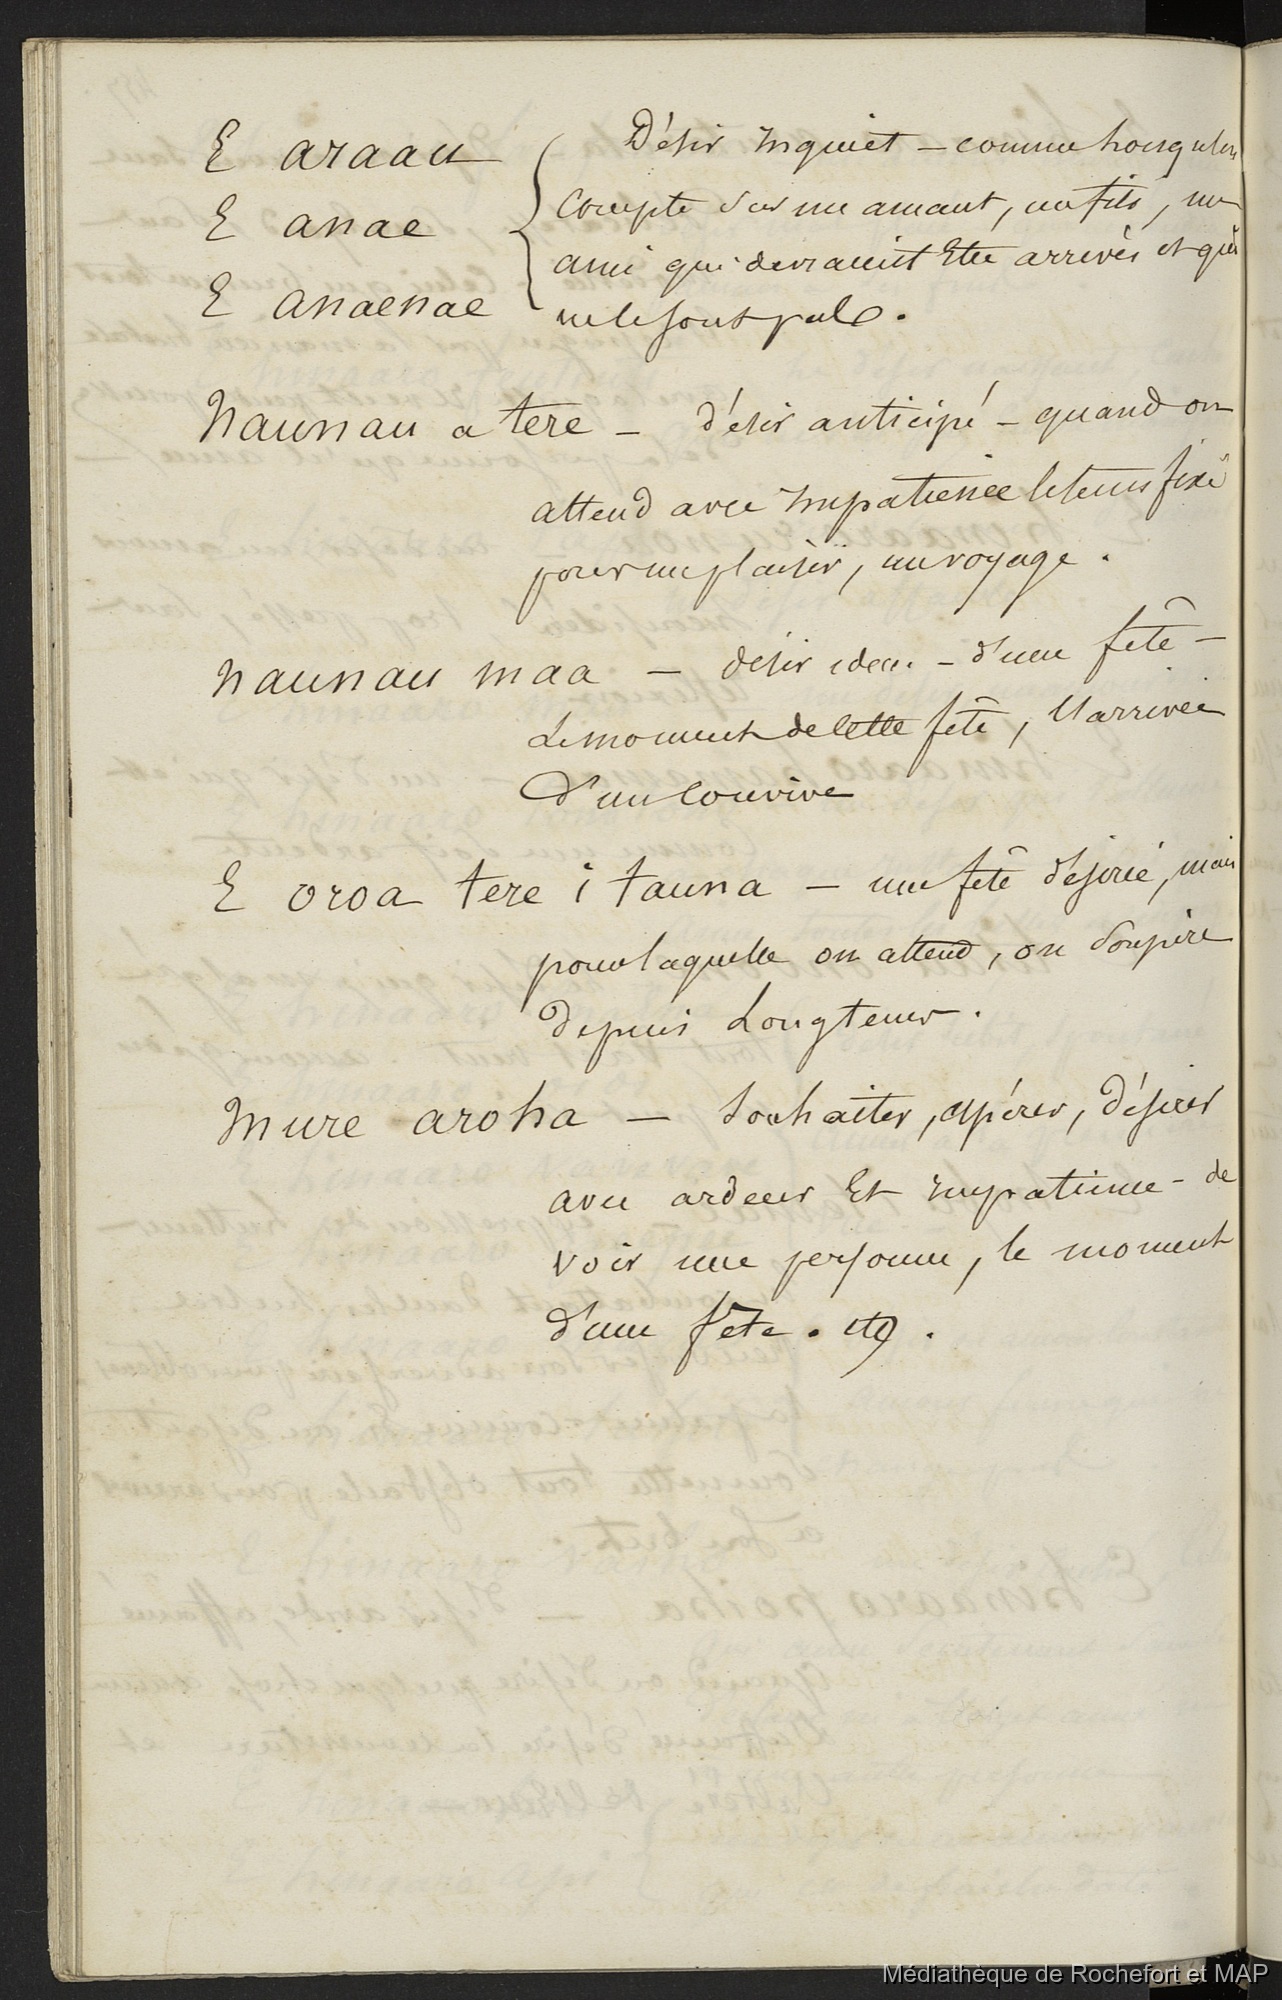 E araau
E anae
E anaenae
Désir inquiet – comme lorsqu'on
compte sur un amant, un fils, un
ami qui devraient Etre arrivés et qui
ne le sont pas.
Naunau a tere – désir anticipé – quand on
attend avec impatience le tems fixé
pour un plaisir, un voyage.
naunau maa – désir idem – d'une fête –
Le moment de cette fête, l'arrivée
d'un convive
E oroa tere i tauna – une fête désirée, mais
pour laquelle on attend, on soupire
depuis Longtems.
Mure aroha – souhaiter, espérer, désirer
avec ardeur Et impatience – de
voir une personne, le moment
d'une fête. etc.
Médiathèque de Rochefort et MAP